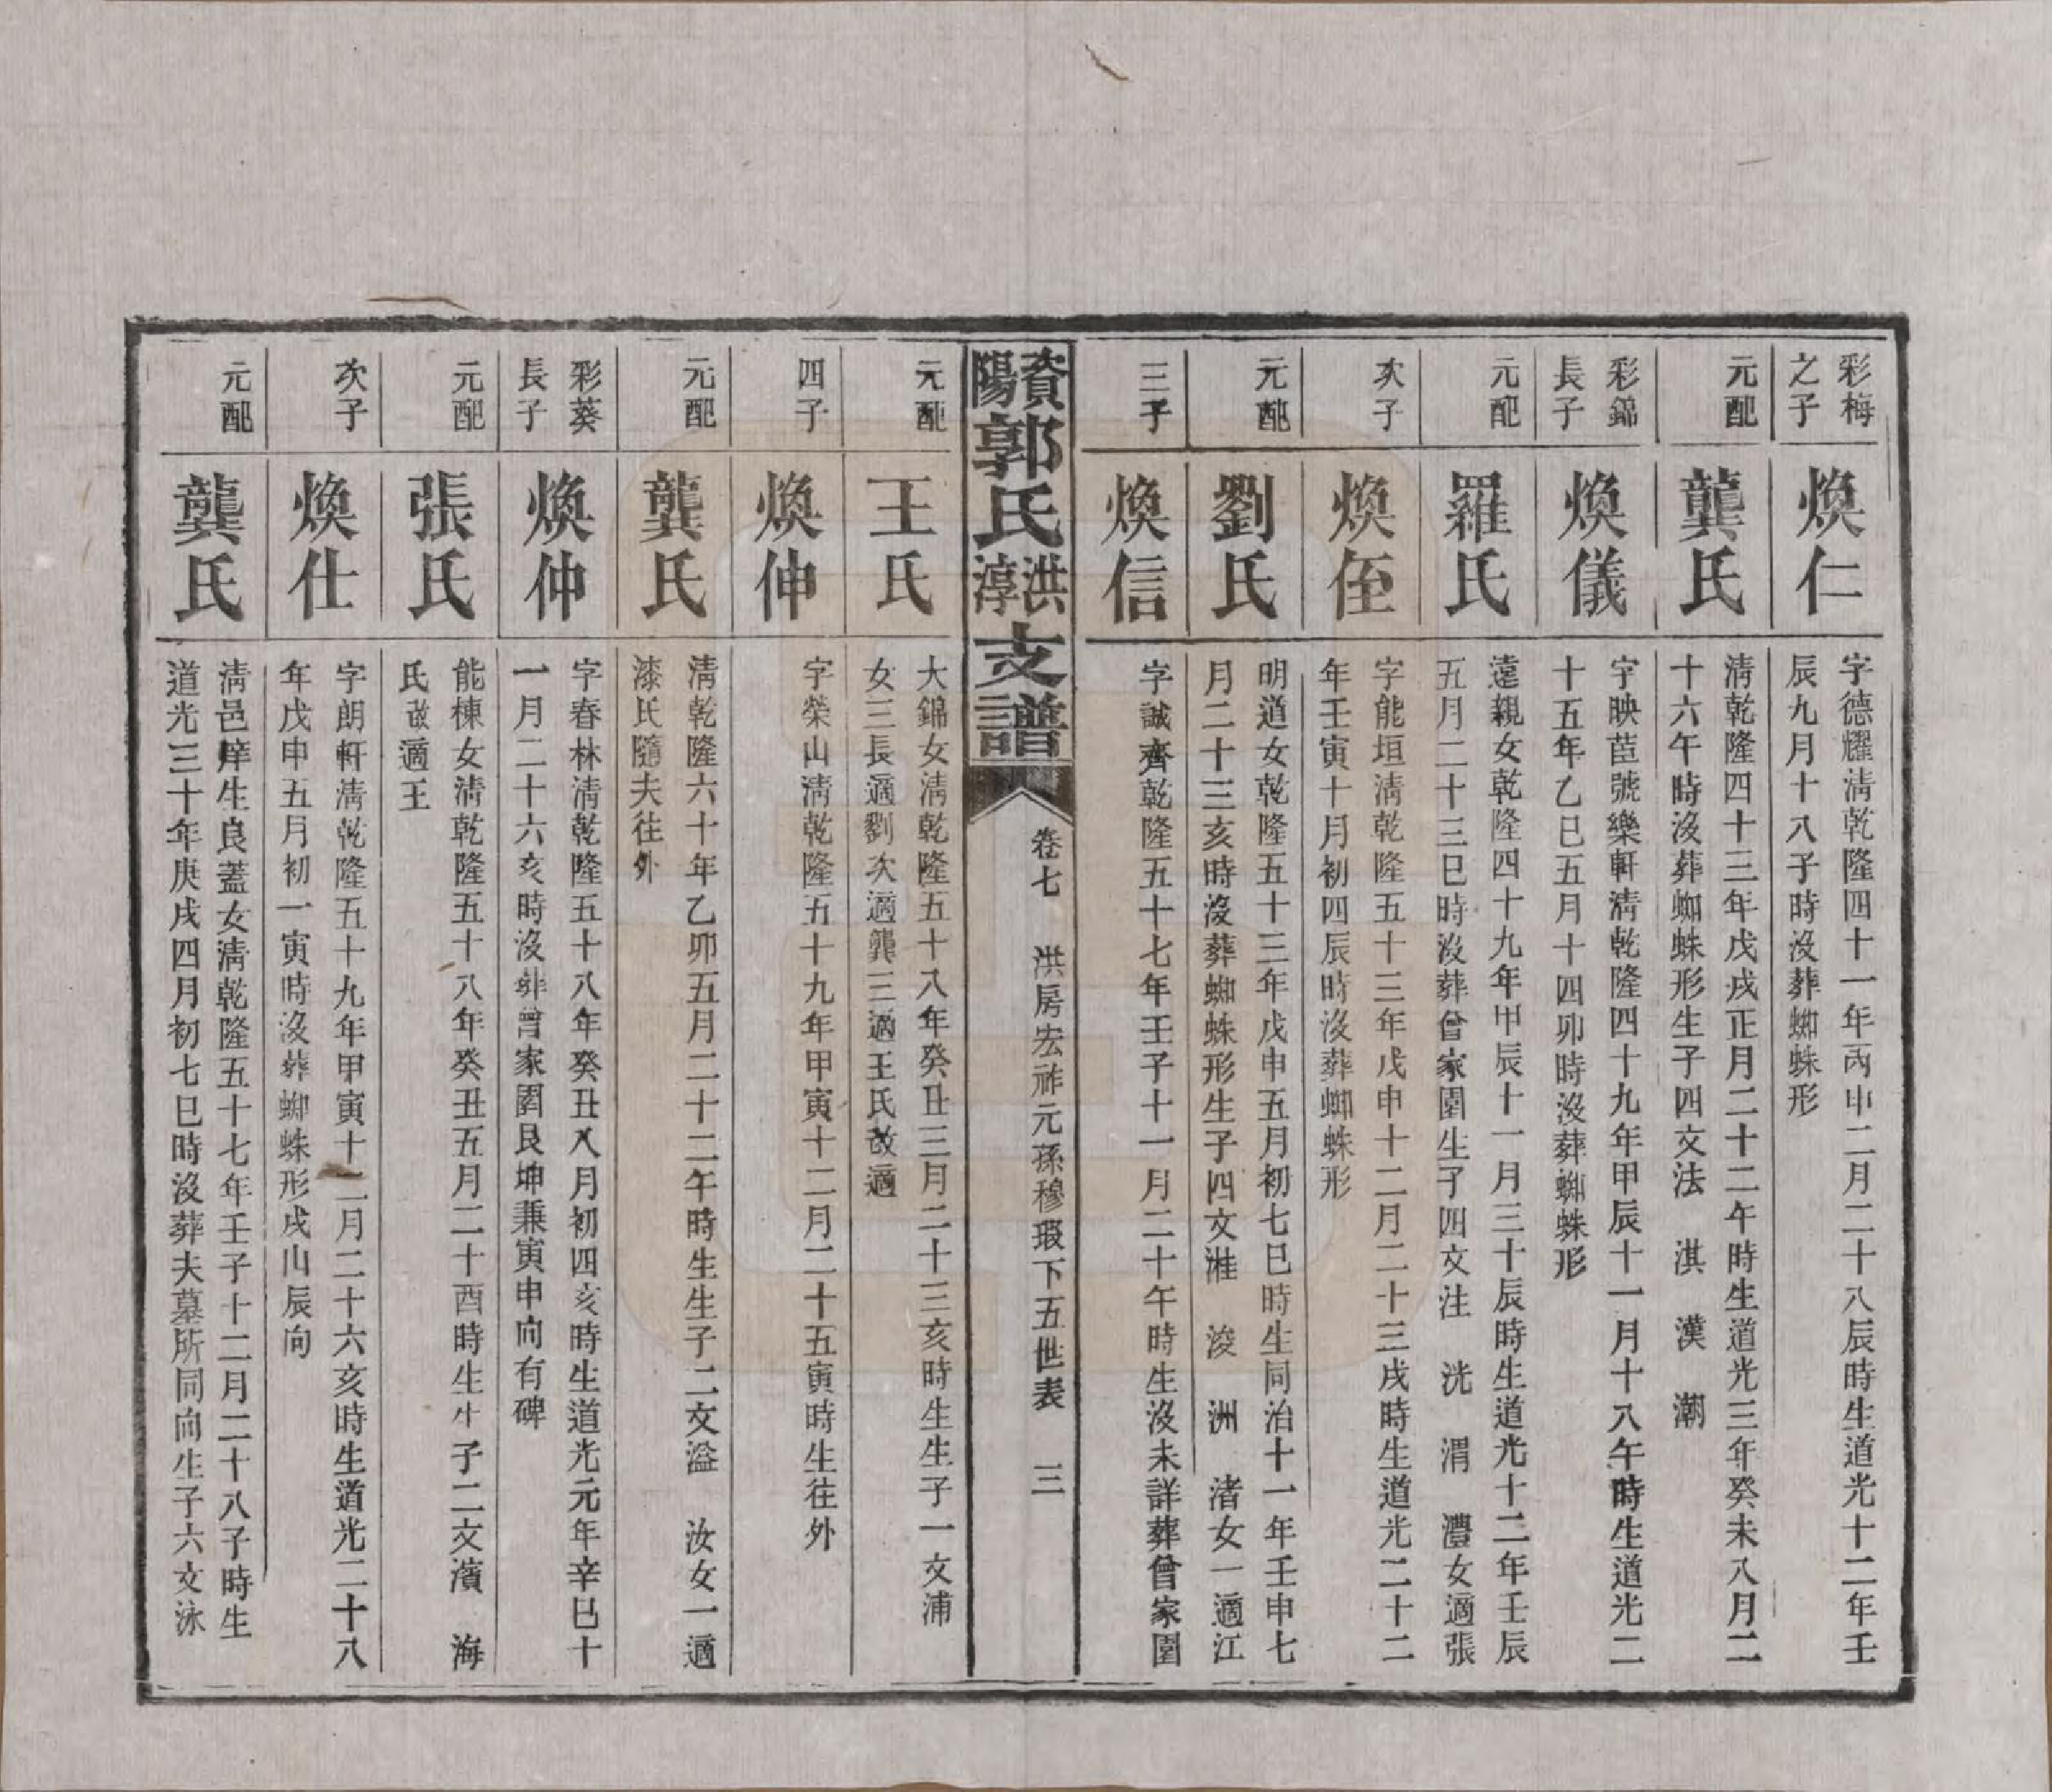 彩梅
之子
煥仁
字德耀淸乾隆四十一年丙申二月二十八辰時生道光十二年壬
辰九月十八子時沒葬蜘蛛形
元配
龔氏
淸乾隆四十三年戊戌正月二十二午時生道光三年癸未八月二
十六午時沒葬蜘蛛形生子四文法　淇　漢　潮
彩錦
長子
煥儀
字映苣號樂軒淸乾隆四十九年甲辰十一月十八午時生道光二
十五年乙巳五月十四卯時沒葬蜘蛛形
元配
羅氏
遠親女乾隆四十九年甲辰十一月三十辰時生道光十二年壬辰
五月二十三巳時沒葬曾家園生子四文注　洸　渭　灃女適張
次子
煥侄
字能垣淸乾隆五十三年戊申十二月二十三戌時生道光二十二
年壬寅十月初四辰時沒葬蜘蛛形
元配
劉氏
明道女乾隆五十三年戊申五月初七巳時生同治十一年壬申七
月二十三亥時沒葬蜘蛛形生子四文淮　浚　洲　渚女一適江
三子
煥信
字誠齊乾隆五十七年壬子十一月二十午時生沒未詳葬曾家園
資陽郭氏洪淳支譜
卷七　洪房宏祚元孫穆瑕下五世表　三
元配
王氏
大錦女淸乾隆五十八年癸丑三月二十三亥時生生子一文浦
女三長適劉次適龔三適王氏改適
四子
煥伸
字榮山淸乾隆五十九年甲寅十二月二十五寅時生往外
元配
龔氏
淸乾隆六十年乙卯五月二十二午時生生子二文溢　汝女一適
漆氏隨夫往外
彩葵
長子
煥仲
字春林淸乾隆五十八年癸丑八月初四亥時生道光元年辛巳十
一月二十六亥時沒葬曾家園艮坤兼寅申向有碑
元配
張氏
能棟女淸乾隆五十八年癸丑五月二十酉時生生子二文濱　海
氏改適王
次子
煥仕
字朗軒淸乾隆五十九年甲寅十二月二十六亥時生道光二十八
年戊申五月初一寅時沒葬蜘蛛形戌山辰向
元配
龔氏
淸邑庠生良蓋女淸乾隆五十七年壬子十二月二十八子時生
道光三十年庚戌四月初七巳時沒葬夫墓所同向生子六文泳